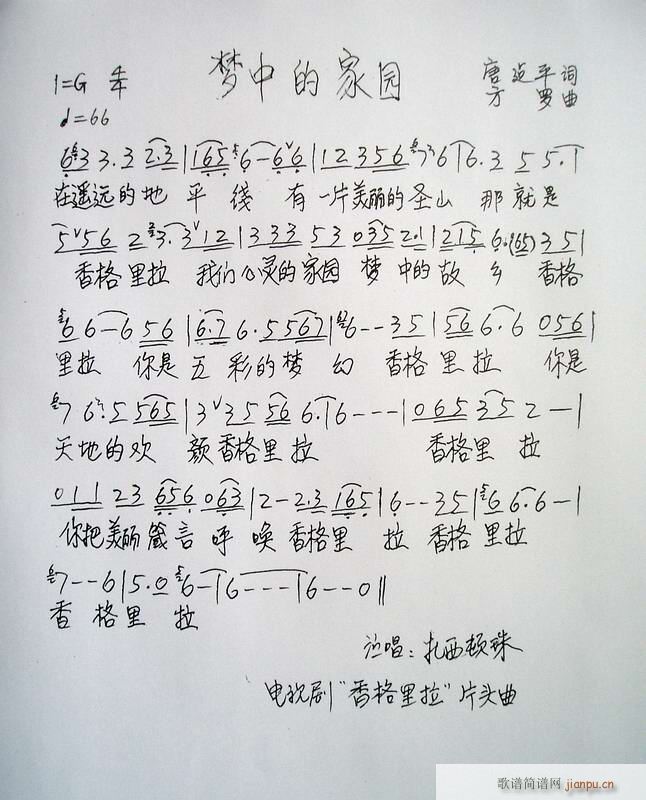 1=G 4/4 梦中的家园 唐 平 词
♩=66 方 罗 曲
6 3 3. 3 2.3 | 1 6 5 6 - 6 6 | 1 2 3 5 6 7 6 | 6. 3 5 5. 1
在遥远的地 平 线 有 一片美丽的圣山 那 就 是
5 5 6 2 3. 3 1 2 | 3 3 3 5 3 0 3 5 2.1 | 2 1 5 6. (6 5) 3 5 |
香格里拉 我们心灵的家园 梦 中的故 乡 香格
6 6 - 6 5 6 | 6.7 6. 5 5 6 7 | 6 - - 3 5 | 5 6 6. 6 0 5 6 |
里拉 你是 五 彩的梦 幻 香格里拉 你是
7 6. 5 5 6 5 | 3 3 5 5 6 6. | 6 - - - | 0 6 5 3 5 2 - |
天地的欢 颜香格里拉 香格里 拉
0 1 1 2 3 6 5 6 0 6 3 | 2 - 2.3 1 6 5 | 6 - - 3 5 | 6 6. 6 - |
你把美丽箴言 呼 唤 香格里 拉 香格里拉
7 - - 6 | 5. 0 6 - | 6 - - - | 6 - - 0 ‖
香 格里 拉
演唱：扎西顿珠
电视剧"香格里拉"片头曲
歌谱简谱网 jianpu.cn